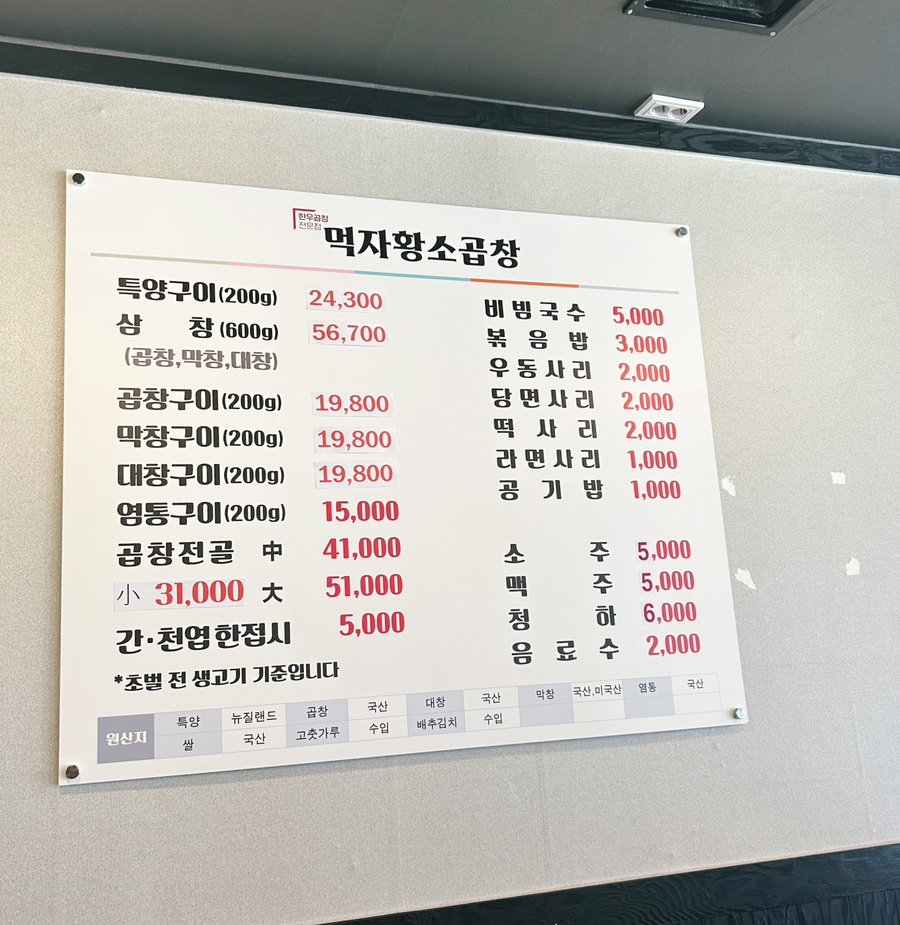 한우곱창
전문점
먹자황소곱창
특양구이(200g) 24,300
삼 창 (600g) 56,700
(곱창,막창,대창)
곱창구이(200g) 19,800
막창구이(200g) 19,800
대창구이(200g) 19,800
염통구이(200g) 15,000
곱창전골 中 41,000
小 31,000 大 51,000
간·천엽 한접시 5,000
*초벌 전 생고기 기준입니다
비빔국수 5,000
볶음밥 3,000
우동사리 2,000
당면사리 2,000
떡사리 2,000
라면사리 1,000
공기밥 1,000
소주 5,000
맥주 5,000
청하 6,000
음료수 2,000
원산지
특양 뉴질랜드 곱창 국산 대창 국산 막창 국산,미국산 염통 국산
쌀 국산 고춧가루 수입 배추김치 수입